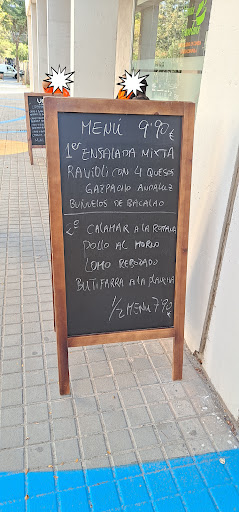 MENÚ 9'90€
1er ENSALADA MIXTA
RAVIOLI CON 4 QUESOS
GAZPACHO ANDALUZ
BUÑUELOS DE BACALAO
2º CALAMAR A LA ROMANA
POLLO AL HORNO
LOMO REBOZADO
BUTIFARRA A LA PLANCHA
1/2 MENU 7'90